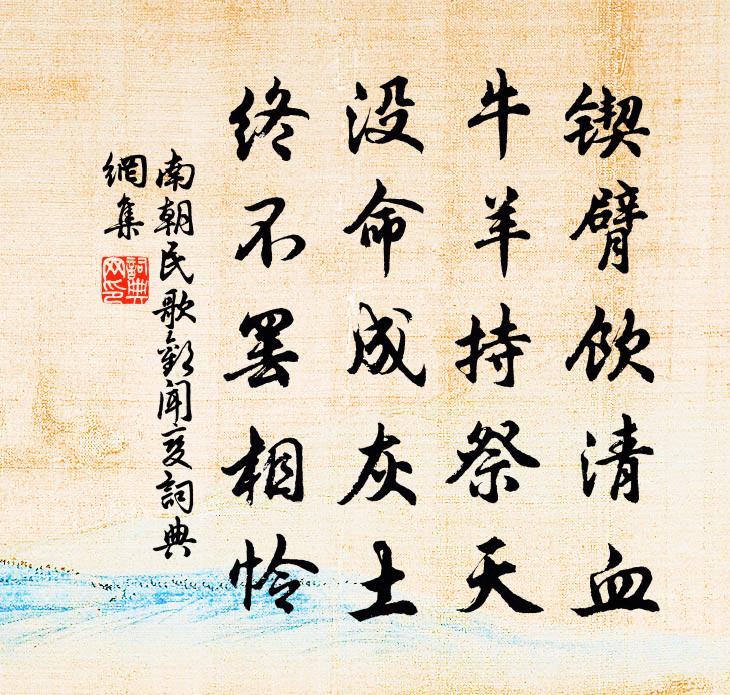 锲臂饮清血
牛羊持祭天
没命成灰土
终不罢相怜
南朝民歌歡闻变詞典
網集
詞典
网印